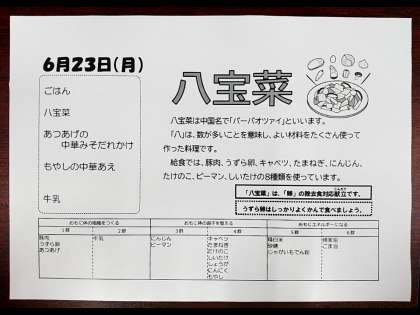 6月23日(月)
ごはん
八宝菜
あつあげの
中華みそだれかけ
もやしの中華あえ
牛乳
八宝菜
八宝菜は中国名で「バーバオツァイ」といいます。
「八」は、数が多いことを意味し、よい材料をたくさん使って
作った料理です。
給食では、豚肉、うずら卵、キャベツ、たまねぎ、にんじん、
たけのこ、ピーマン、しいたけの8種類を使っています。
「八宝菜」は、「卵」の除去食対応献立です。
うずら卵はしっかりよくかんで食べましょう。
おもに体の組織をつくる
おもに体の調子を整える
おもにエネルギーになる
1群 2群 3群 4群 5群 6群
豚肉
うずら卵
あつあげ
牛乳
にんじん
ピーマン
キャベツ
たまねぎ
たけのこ
しいたけ
しょうが
にんにく
もやし
精白米
砂糖
じゃがいもでん粉
ごま油